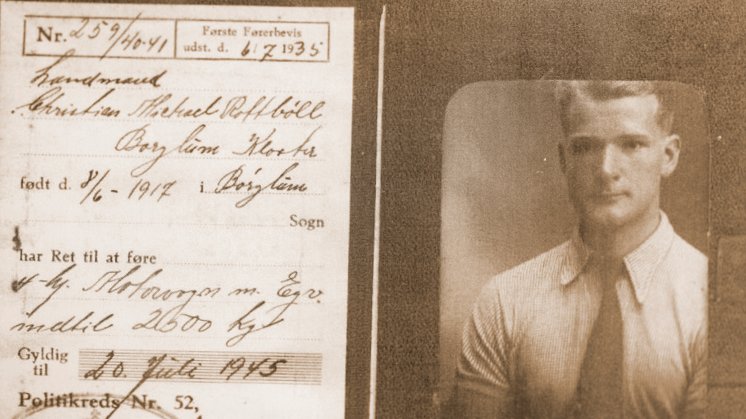 Nr. 259/40-41
Første Førerbevis
udst. d. 6/7 1935
Landmand
Christian Michael Rottbøll
Børglum Kloster
født d. 8/6 - 1917 i Børglum
Sogn
har Ret til at føre
4-hj. Motorvogn m. Egv.
indtil 2500 kg.
Gyldig
til 20. Juli 1945
Politikreds Nr. 52,